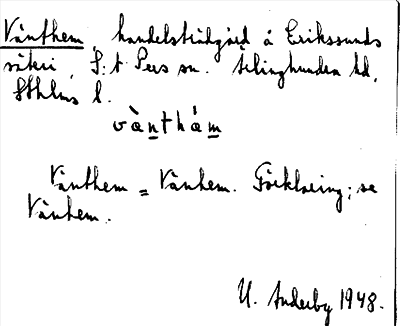 Vänthem, handelsträdgård å Erikssunds
säteri, S:t Pers sn. Ärlinghundra hd,
Sthlms l.
vànthám
Vänthem = Vänhem. Förklaring; se
Vänhem.
U. Anderby 1948.